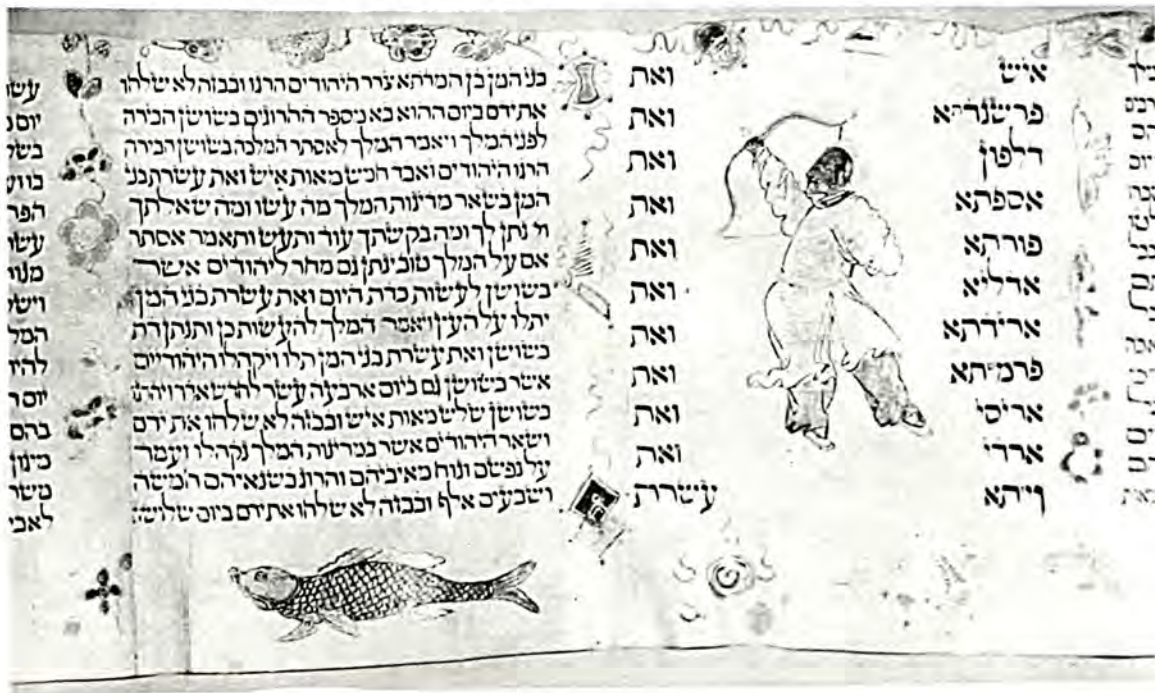 איש ואת
פרשנדתא ואת
דלפון ואת
אספתא ואת
פורתא ואת
אדליא ואת
ארידתא ואת
פרמשתא ואת
אריסי ואת
ארדי ואת
ויזתא עשרת
בני המן בן המדתא צרר היהודים הרגו ובבזה לא שלחו
את ידם ביום ההוא בא מספר ההרוגים בשושן הבירה
לפני המלך ויאמר המלך לאסתר המלכה בשושן הבירה
הרגו היהודים ואבד חמש מאות איש ואת עשרת בני
המן בשאר מדינות המלך מה עשו ומה שאלתך
וינתן לך ומה בקשתך עוד ותעש ותאמר אסתר
אם על המלך טוב ינתן גם מחר ליהודים אשר
בשושן לעשות כדת היום ואת עשרת בני המן
יתלו על העץ ויאמר המלך להעשות כן ותנתן דת
בשושן ואת עשרת בני המן תלו ויקהלו היהודיים
אשר בשושן גם ביום ארבעה עשר לחדש אדר ויהרגו
בשושן שלש מאות איש ובבזה לא שלחו את ידם
ושאר היהודים אשר במדינות המלך נקהלו ועמד
על נפשם ונוח מאיביהם והרג בשנאיהם חמשה
ושבעים אלף ובבזה לא שלחו את ידם ביום שלושה